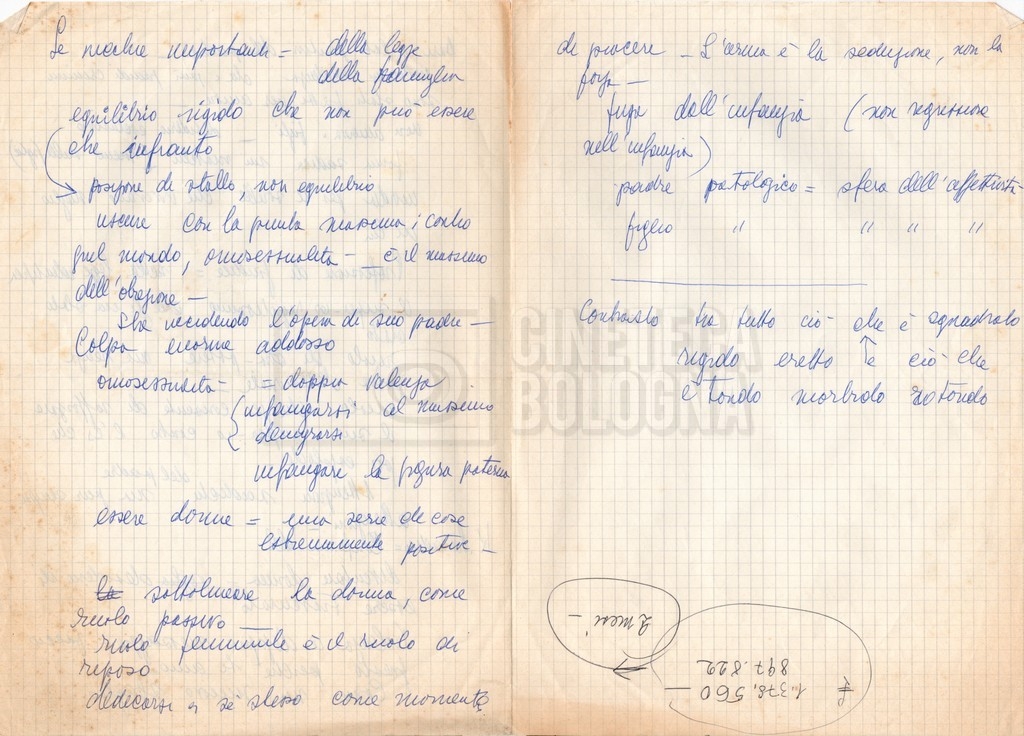 Le machie importanti = della legge
della famiglia
equilibrio rigido che non può essere
che infranto
posizione di stallo, non equilibrio
uscire con la punta massima, contro
quel mondo, omosessualità - è il massimo
dell'obiezione -
Sta uccidendo l'opera di suo padre -
Colpa enorme addosso
omosessualità - = doppia valenza
infangarsi al massimo
denigrarsi
infangare la figura paterna
essere donne = una serie di cose
estremamente positive -
la sottolineare la donna, come
ruolo passivo -
ruolo femminile è il ruolo di
riposo
dedicarsi a sè stesso come momento
di piacere - L'arma è la seduzione, non la
forza -
fuga dall'infanzia (non regressione
nell'infanzia)
padre patologico = sfera dell'affettività -
figlio " " " "
Contrasto tra tutto ciò che è squadrato
rigido eretto e ciò che
è tondo morbido rotondo
CINETECA
BOLOGNA
2 mesi -
£ 1.378.560 -
897.822